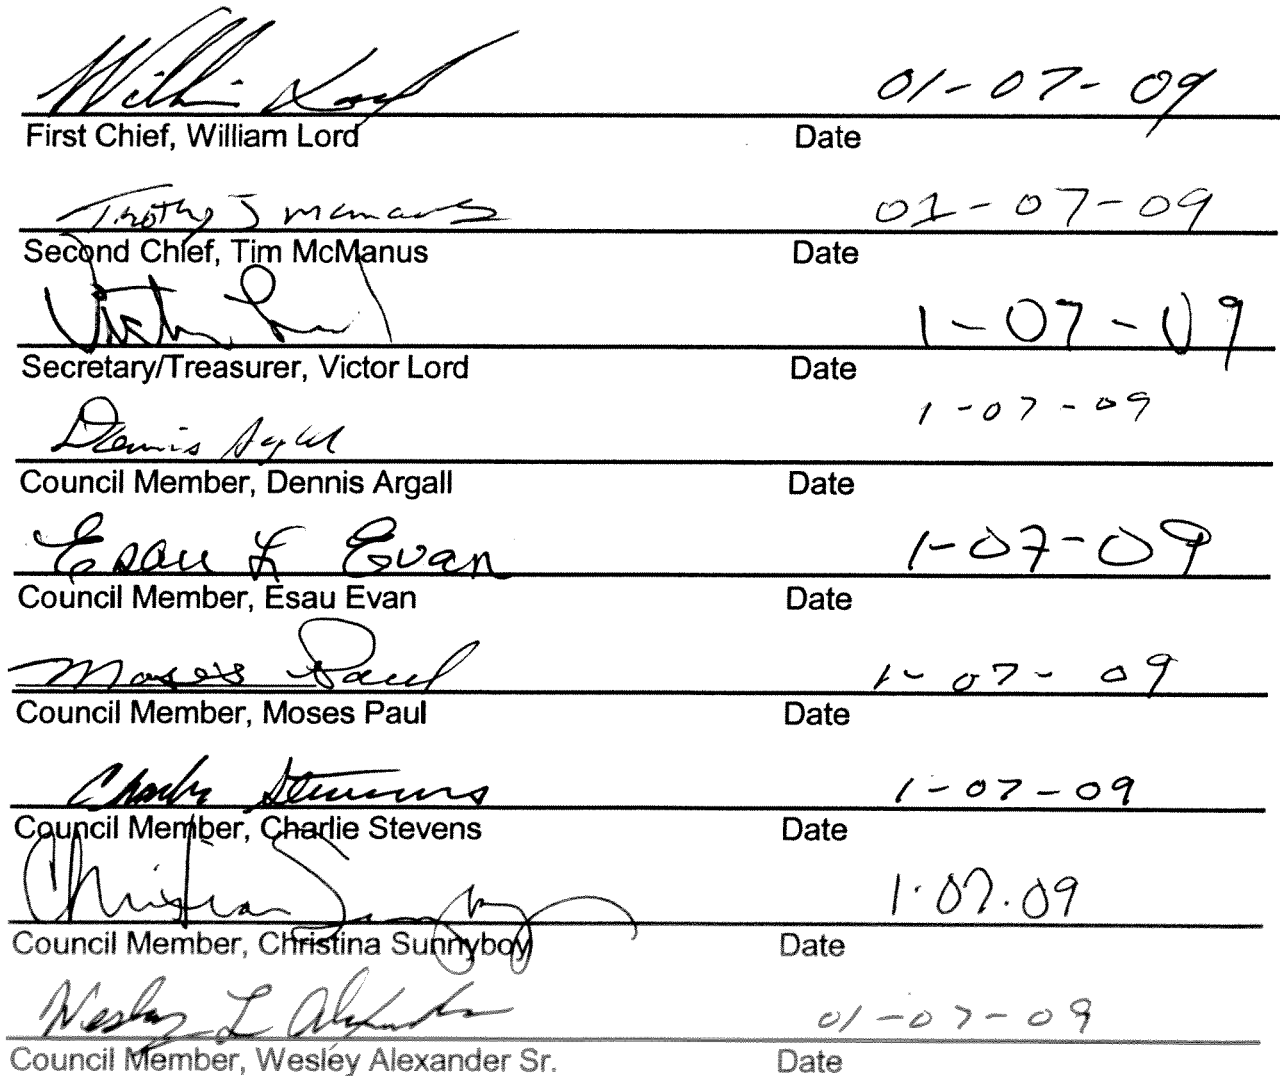 William Lord 01-07-09
First Chief, William Lord Date
Timothy J McManus 01-07-09
Second Chief, Tim McManus Date
Victor Lord 1-07-09
Secretary/Treasurer, Victor Lord Date
Dennis Argall 1-07-09
Council Member, Dennis Argall Date
Esau L Evan 1-07-09
Council Member, Esau Evan Date
Moses Paul 1-07-09
Council Member, Moses Paul Date
Charlie Stevens 1-07-09
Council Member, Charlie Stevens Date
Christina Sunnyboy 1.07.09
Council Member, Christina Sunnyboy Date
Wesley L Alexander 01-07-09
Council Member, Wesley Alexander Sr. Date